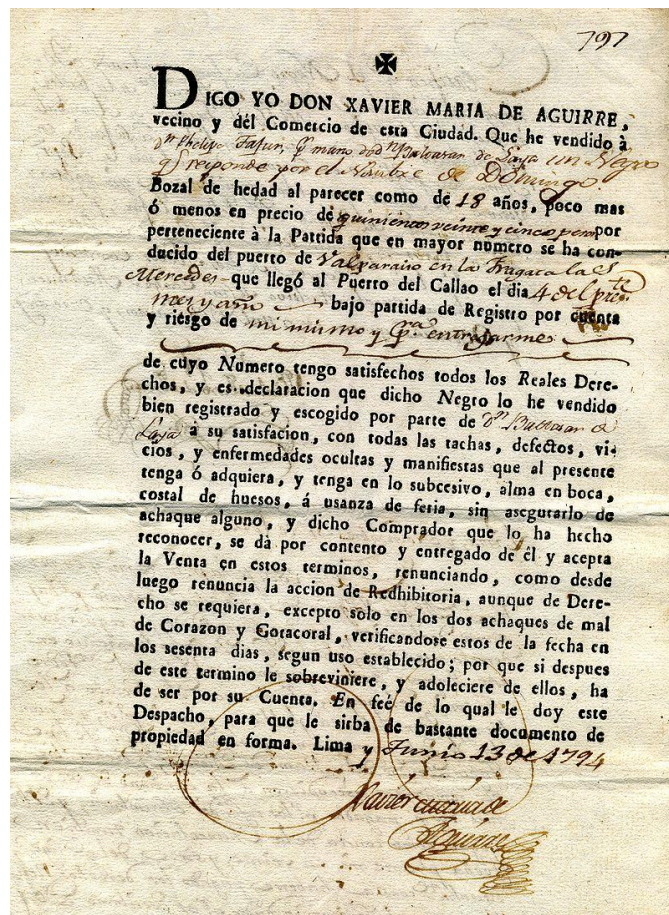 797
DIGO YO DON XAVIER MARIA DE AGUIRRE,
vecino y dél Comercio de esta Ciudad. Que he vendido à
Dn. Phelipe mano de Dn. Baltasar de Laya un Negro
q. responde por el Nombre de Domingo.
Bozal de hedad al parecer como de 18 años, poco mas
ó menos en precio de quinientos veinte y cinco pesos por
perteneciente à la Partida que en mayor numero se ha con-
ducido del puerto de Valparaiso en la Fragata las
Mercedes que llegó al Puerto del Callao el dia 4 del
mes y año bajo partida de Registro por cuenta
y riesgo de mi mismo y pa. entregarme
de cuyo Numero tengo satisfechos todos los Reales Dere-
chos, y es declaracion que dicho Negro lo he vendido
bien registrado y escogido por parte de Dn. Baltasar de
Laya á su satisfacion, con todas las tachas, defectos, vi-
cios, y enfermedades ocultas y manifiestas que al presente
tenga ó adquiera, y tenga en lo subcesivo, alma en boca,
costal de huesos, á usanza de feria, sin asegurarlo de
achaque alguno, y dicho Comprador que lo ha hecho
reconocer, se dà por contento y entregado de él y acepta
la Venta en estos terminos, renunciando, como desde
luego renuncia la accion de Redhibitoria, aunque de Dere-
cho se requiera, excepto solo en los dos achaques de mal
de Corazon y Gotacoral, verificandose estos de la fecha en
los sesenta dias, segun uso establecido; por que si despues
de este termino le sobreviniere, y adoleciere de ellos, ha
de ser por su Cuenta. En feé de lo qual le doy este
Despacho, para que le sirba de bastante documento de
propiedad en forma. Lima y Junio 13 de 1794
Xavier Maria de
Aguirre